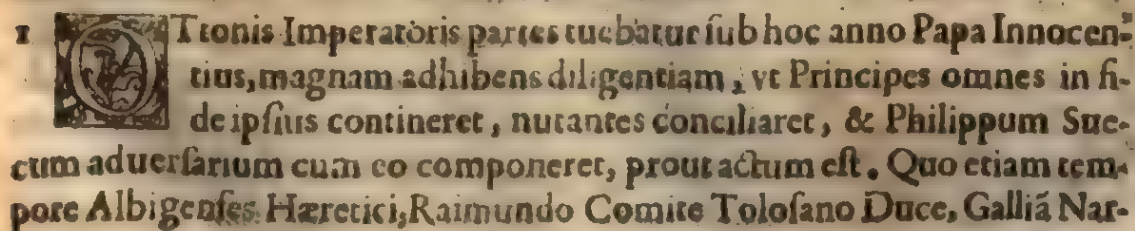 1 OTtonis Imperatoris partes tuebatur ſub hoc anno Papa Innocen-
tius, magnam adhibens diligentiam, vt Principes omnes in fi-
de ipſius contineret, nutantes conciliaret, & Philippum Sue-
cum aduerſarium cum eo componeret, prout actum eſt. Quo etiam tem-
pore Albigenſes Hæretici, Raimundo Comite Toloſano Duce, Galliã Nar-